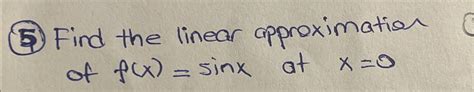 ⑤ Find the linear approximation
of f(x) = sinx at x=0